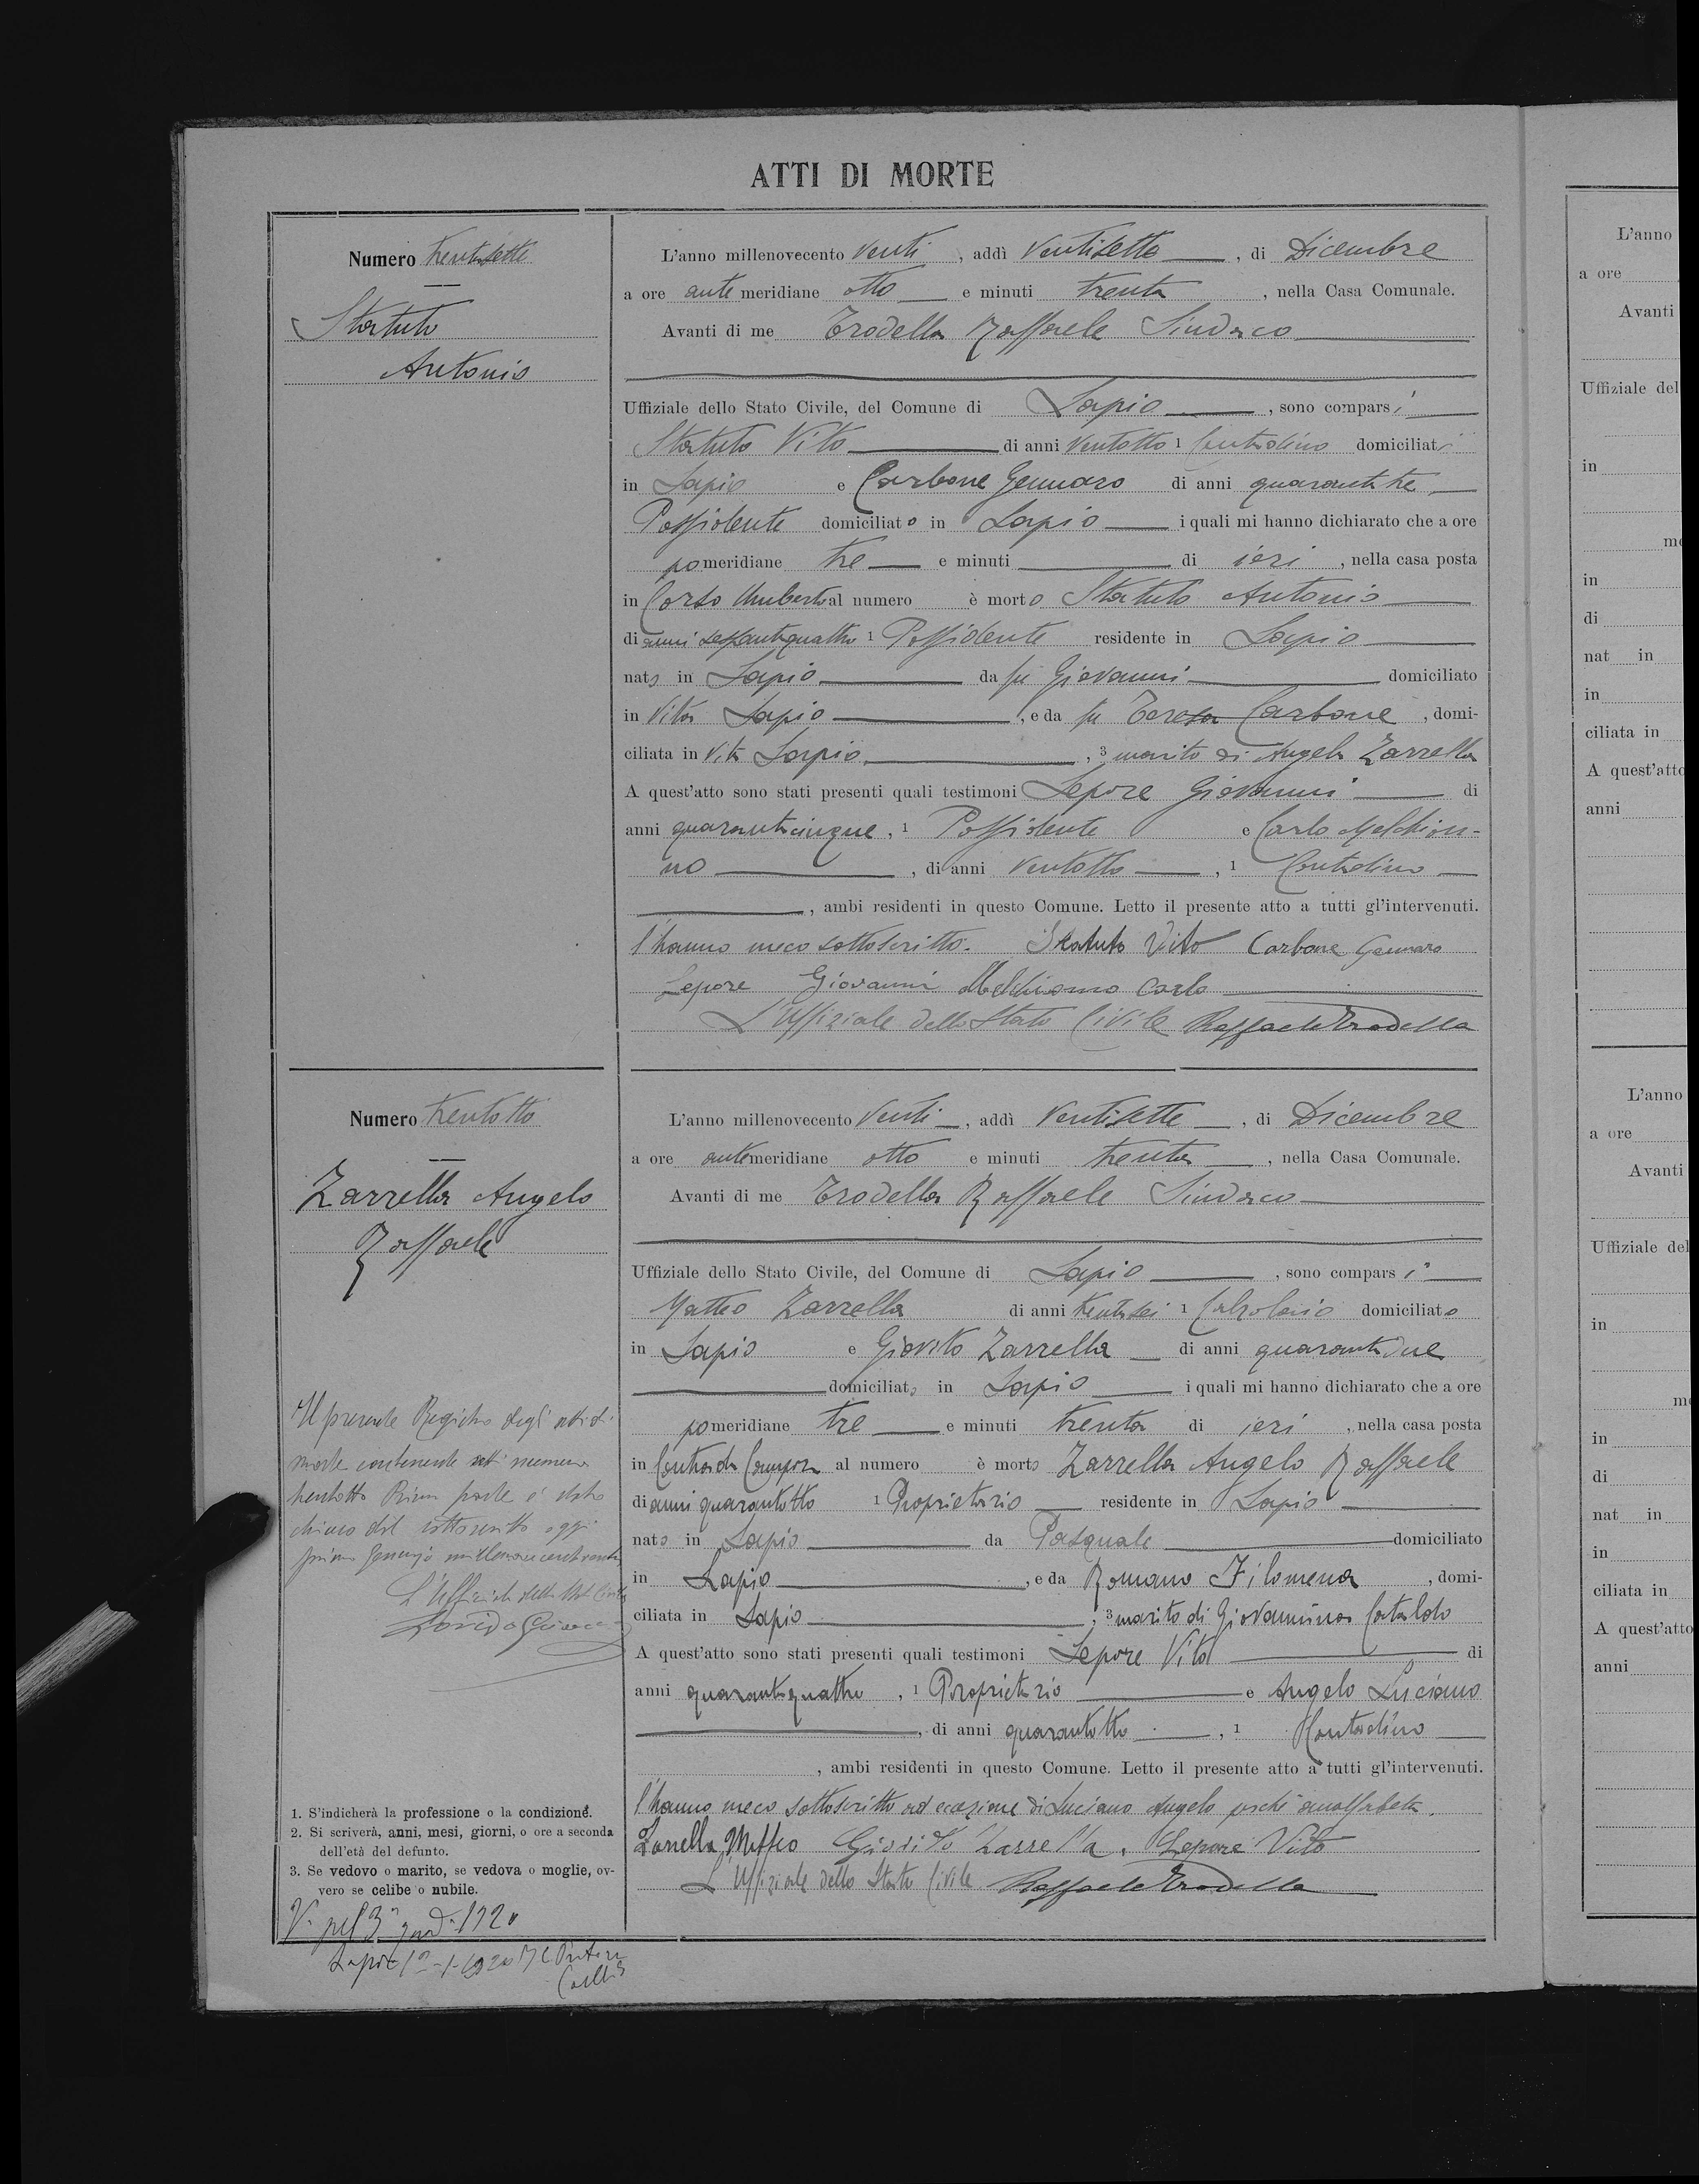 ATTI DI MORTE
Numero trentasette
Statuto
Antonio
L'anno millenovecento venti, addì ventisette, di Dicembre
a ore antemeridiane otto e minuti trenta, nella Casa Comunale.
Avanti di me Trodella Raffaele Sindaco
Uffiziale dello Stato Civile, del Comune di Lapio, sono comparsi
Statuto Vito di anni ventotto 1 Contadino domiciliati
in Lapio e Carbone Gennaro di anni quarantatre
Possidente domiciliato in Lapio i quali mi hanno dichiarato che a ore
pomeridiane tre e minuti di ieri, nella casa posta
in Corso Umberto al numero è morto Statuto Antonio
di anni sessantaquattro 1 Possidente residente in Lapio
nato in Lapio da fu Giovanni domiciliato
in vita Lapio, e da fu Teresa Carbone, domi-
ciliata in vita Lapio, 3 marito di Angela Zarrella
A quest'atto sono stati presenti quali testimoni Lepore Giovanni di
anni quarantacinque, 1 Possidente e Carlo Melchion-
no, di anni ventotto, 1 Contadino
, ambi residenti in questo Comune. Letto il presente atto a tutti gl'intervenuti.
l'hanno meco sottoscritto. Statuto Vito Carbone Gennaro
Lepore Giovanni Melchionno Carlo
L'Uffiziale dello Stato Civile Raffaele Trodella
Numero trentotto
Zarrella Angelo
Raffaele
L'anno millenovecento venti, addì ventisette, di Dicembre
a ore antemeridiane otto e minuti trenta, nella Casa Comunale.
Avanti di me Trodella Raffaele Sindaco
Uffiziale dello Stato Civile, del Comune di Lapio, sono comparsi
Matteo Zarrella di anni trentasei 1 Calzolaio domiciliato
in Lapio e Giovito Zarrella di anni quarantadue
domiciliato in Lapio i quali mi hanno dichiarato che a ore
pomeridiane tre e minuti trenta di ieri, nella casa posta
in Contrada Campora al numero è morto Zarrella Angelo Raffaele
di anni quarantotto 1 Proprietario residente in Lapio
nato in Lapio da Pasquale domiciliato
in Lapio, e da Romano Filomena, domi-
ciliata in Lapio, 3 marito di Giovannina Cataldo
A quest'atto sono stati presenti quali testimoni Lepore Vito di
anni quarantaquattro, 1 Proprietario e Angelo Luciano
, di anni quarantotto, 1 Contadino
, ambi residenti in questo Comune. Letto il presente atto a tutti gl'intervenuti.
l'hanno meco sottoscritto ad eccezione di Luciano Angelo perché analfabeta.
Zarrella Matteo Giovito Zarrella. Lepore Vito
L'Uffiziale dello Stato Civile Raffaele Trodella
Il presente Registro degli atti di
morte contenente atti numero
trentotto Prima parte è stato
chiuso dal sottoscritto oggi
primo Gennajo
L'Ufficiale dello Stato Civile
1. S'indicherà la professione o la condizione.
2. Si scriverà, anni, mesi, giorni, o ore a seconda
dell'età del defunto.
3. Se vedovo o marito, se vedova o moglie, ov-
vero se celibe o nubile.
1920
Lapio
L'anno
a ore
Avanti
Uffiziale del
in
me
in
di
nat in
in
ciliata in
A quest'atto
anni
L'anno
a ore
Avanti
Uffiziale del
in
m
in
di
nat in
in
ciliata in
A quest'atto
anni